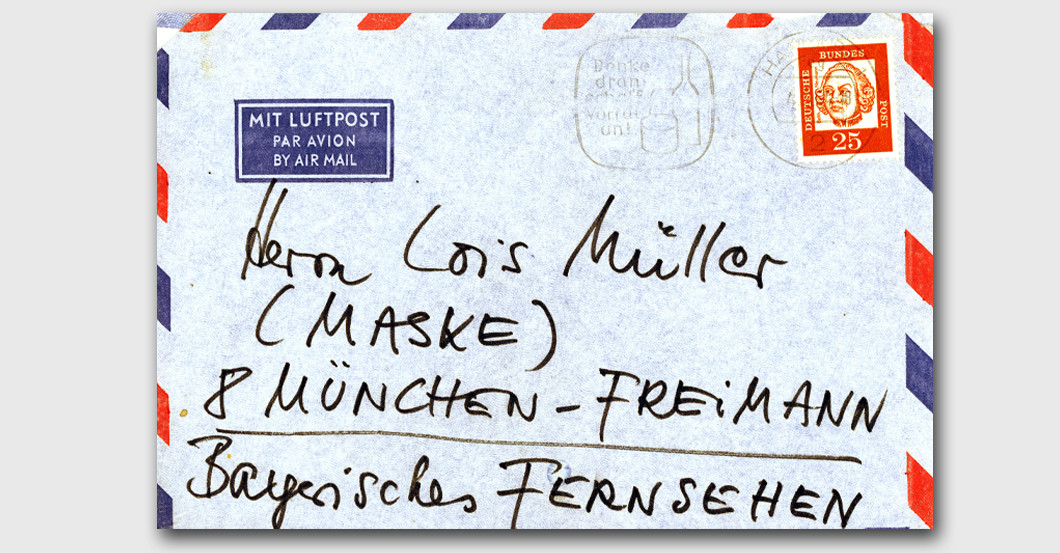 MIT LUFTPOST
PAR AVION
BY AIR MAIL
Denke
dran
an!
HA
2
DEUTSCHE
BUNDES
POST
25
Herrn Lois Müller
(MASKE)
8 MÜNCHEN - FREIMANN
Bayerisches FERNSEHEN